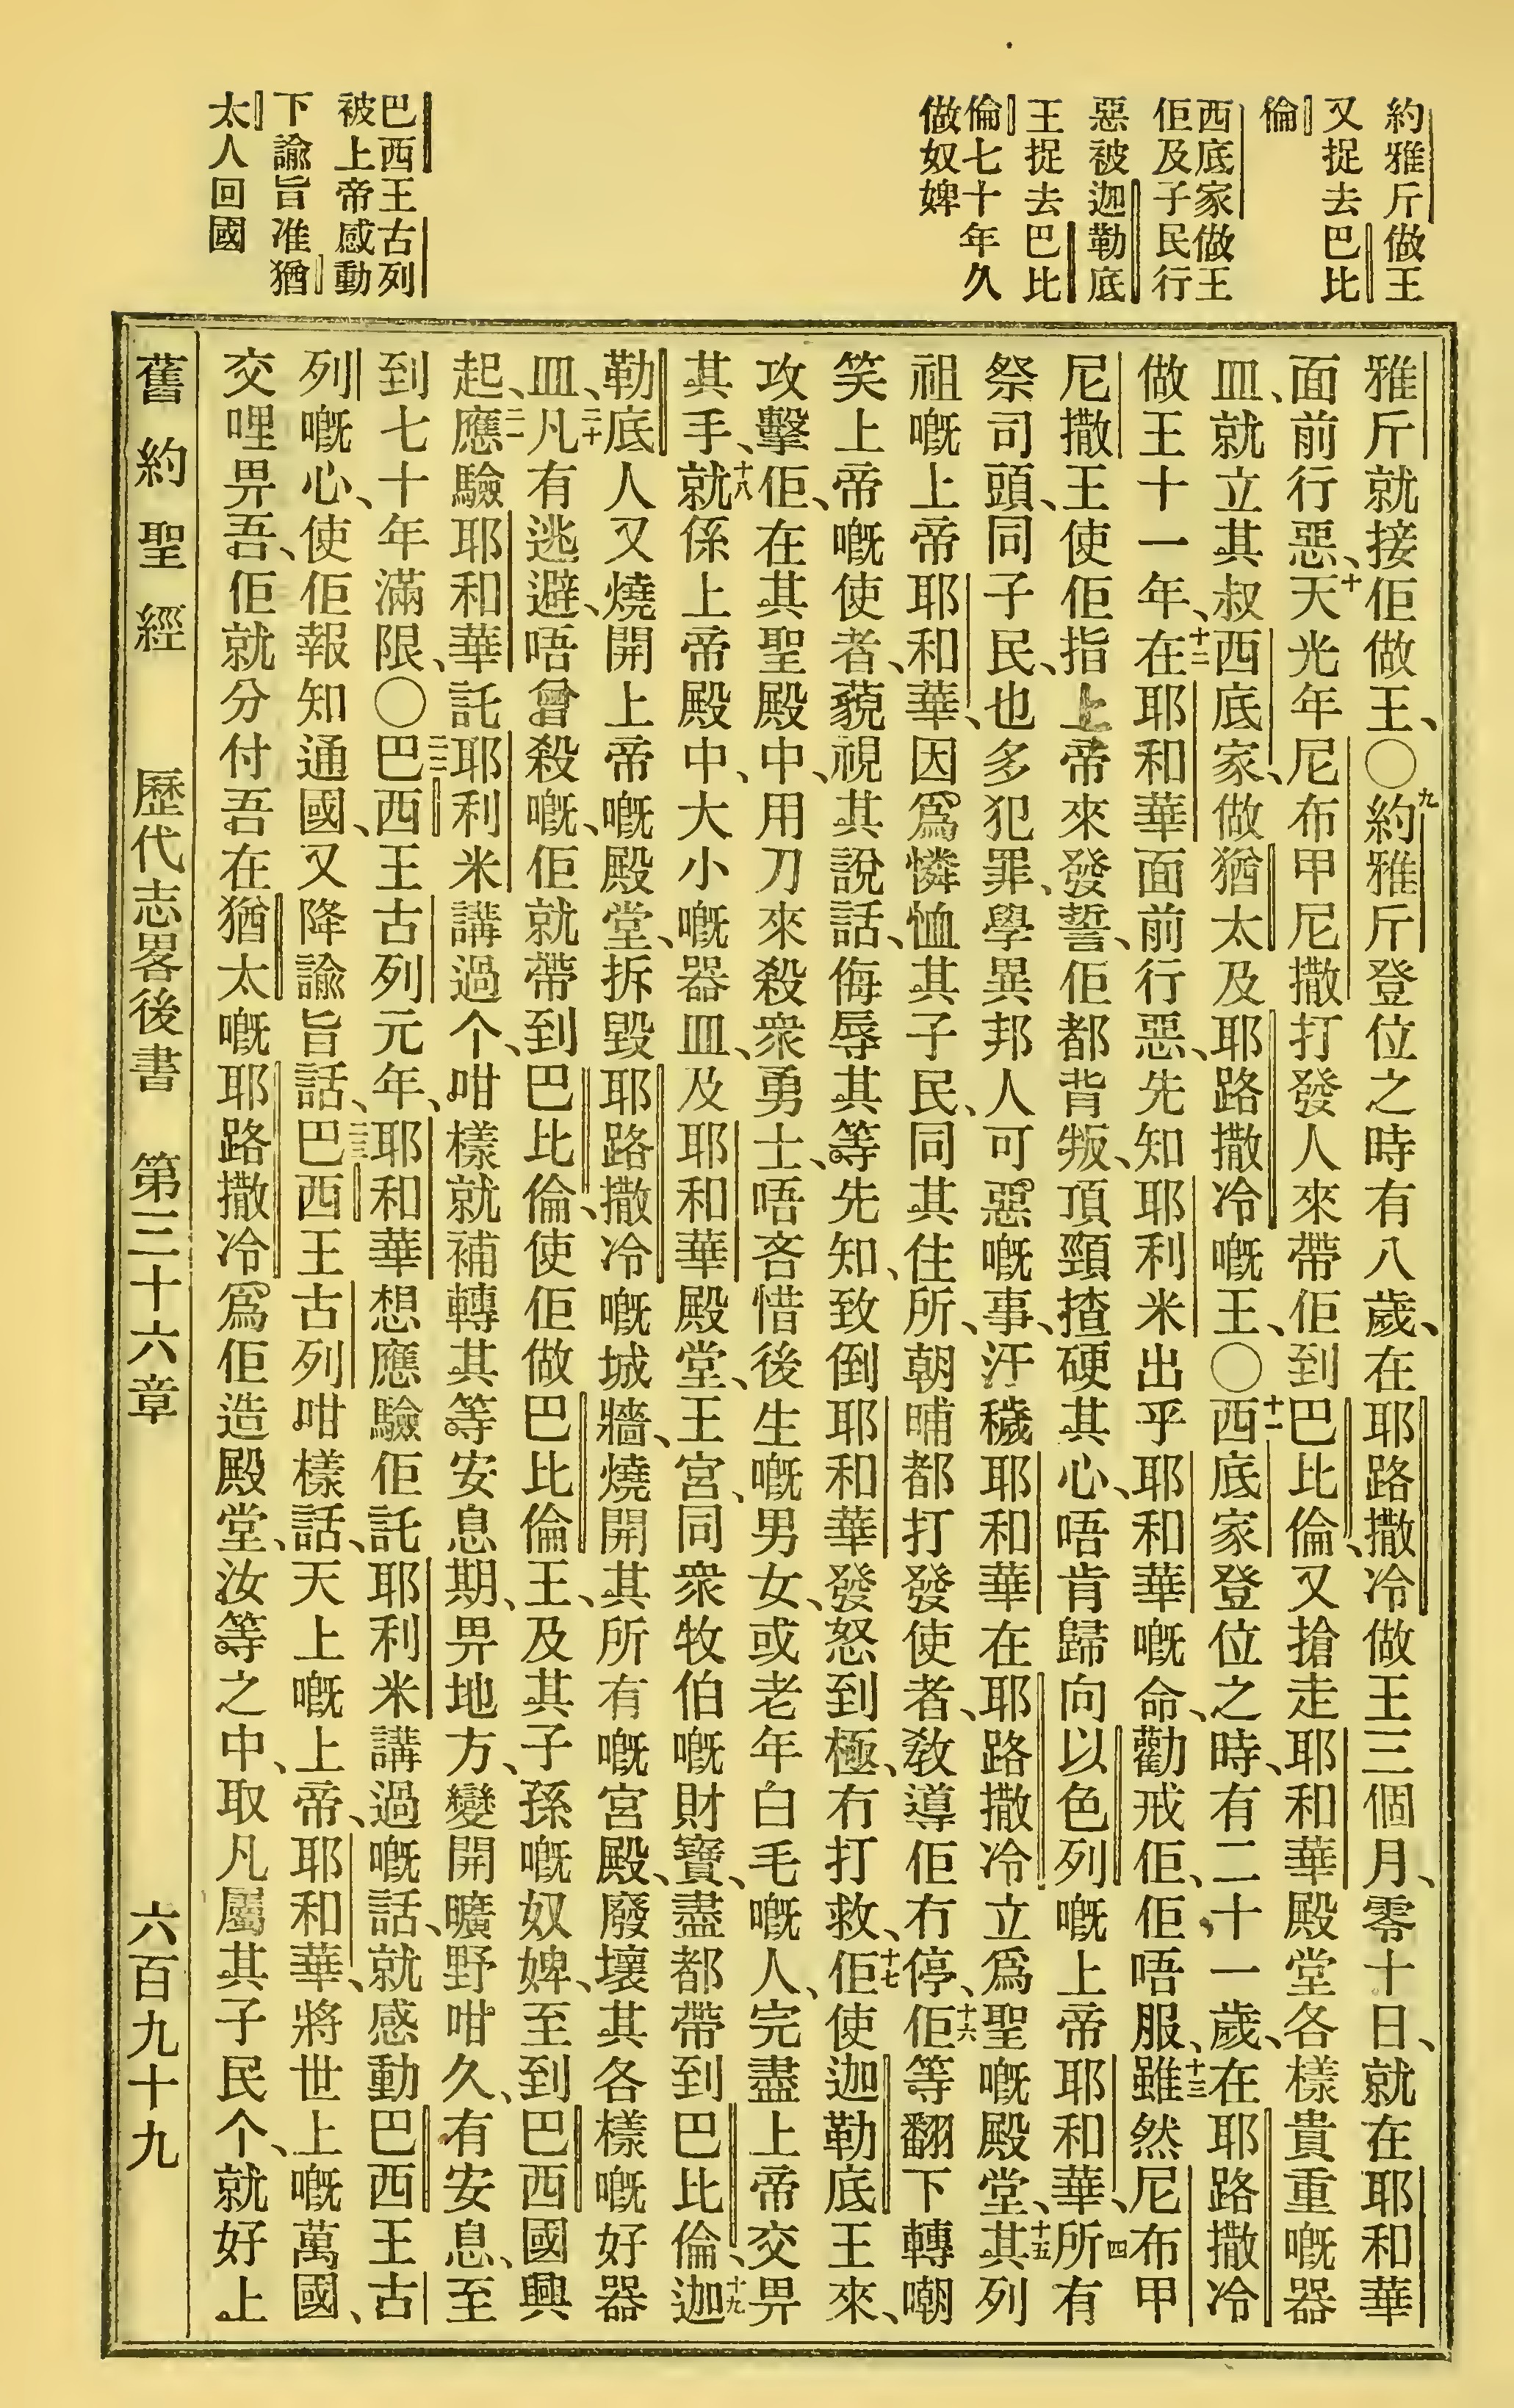 約雅斤做王
又捉去巴比
倫
西底家做王
佢及子民行
惡被迦勒底
王捉去巴比
倫七十年久
做奴婢
巴西王古列
被上帝感動
下諭旨准猶
太人回國
雅斤就接佢做王、〇九約雅斤登位之時有八歲、在耶路撒冷做王三個月、零十日、就在耶和華
面前行惡、十天光年尼布甲尼撒打發人來帶佢到巴比倫、又搶走耶和華殿堂各樣貴重嘅器
皿、就立其叔西底家、做猶太及耶路撒冷嘅王、〇十一西底家登位之時、有二十一歲、在耶路撒冷
做王十一年、十二在耶和華面前行惡、先知耶利米出乎耶和華嘅命、勸戒佢、佢唔服、十三雖然尼布甲
尼撒王使佢指上帝來發誓、佢都背叛、頂頸揸硬其心、唔肯歸向以色列嘅上帝耶和華、四所有
祭司頭、同子民、也多犯罪、學異邦人可惡嘅事、汙穢耶和華在耶路撒冷立爲聖嘅殿堂、十五其列
祖嘅上帝耶和華、因爲憐恤其子民、同其住所、朝晡都打發使者、敎導佢冇停、十六佢等翻下轉嘲
笑上帝嘅使者、藐視其說話、侮辱其等先知、致倒耶和華發怒到極、冇打救、十七佢使迦勒底王來、
攻擊佢、在其聖殿中、用刀來殺衆勇士、唔吝惜後生嘅男女、或老年白毛嘅人、完盡上帝交畀
其手、十八就係上帝殿中、大小嘅器皿、及耶和華殿堂、王宮、同衆牧伯嘅財寶、盡都帶到巴比倫、十九迦
勒底人又燒開上帝嘅殿堂、拆毀耶路撒冷嘅城牆、燒開其所有嘅宮殿、廢壞其各樣嘅好器
皿、二十凡有逃避、唔曾殺嘅、佢就帶到巴比倫、使佢做巴比倫王、及其子孫嘅奴婢、至到巴西國興
起、二一應驗耶和華託耶利米講過个、咁樣就補轉其等安息期、畀地方、變開曠野咁久、有安息、至
到七十年滿限、〇二二巴西王古列元年、耶和華想應驗佢託耶利米講過嘅話、就感動巴西王古
列嘅心、使佢報知通國、又降諭旨話、二三巴西王古列咁樣話、天上嘅上帝、耶和華、將世上嘅萬國、
交哩畀吾、佢就分付吾在猶太嘅耶路撒冷、爲佢造殿堂、汝等之中、取凡屬其子民个、就好上
舊約聖經　歷代志畧後書　第三十六章　六百九十九